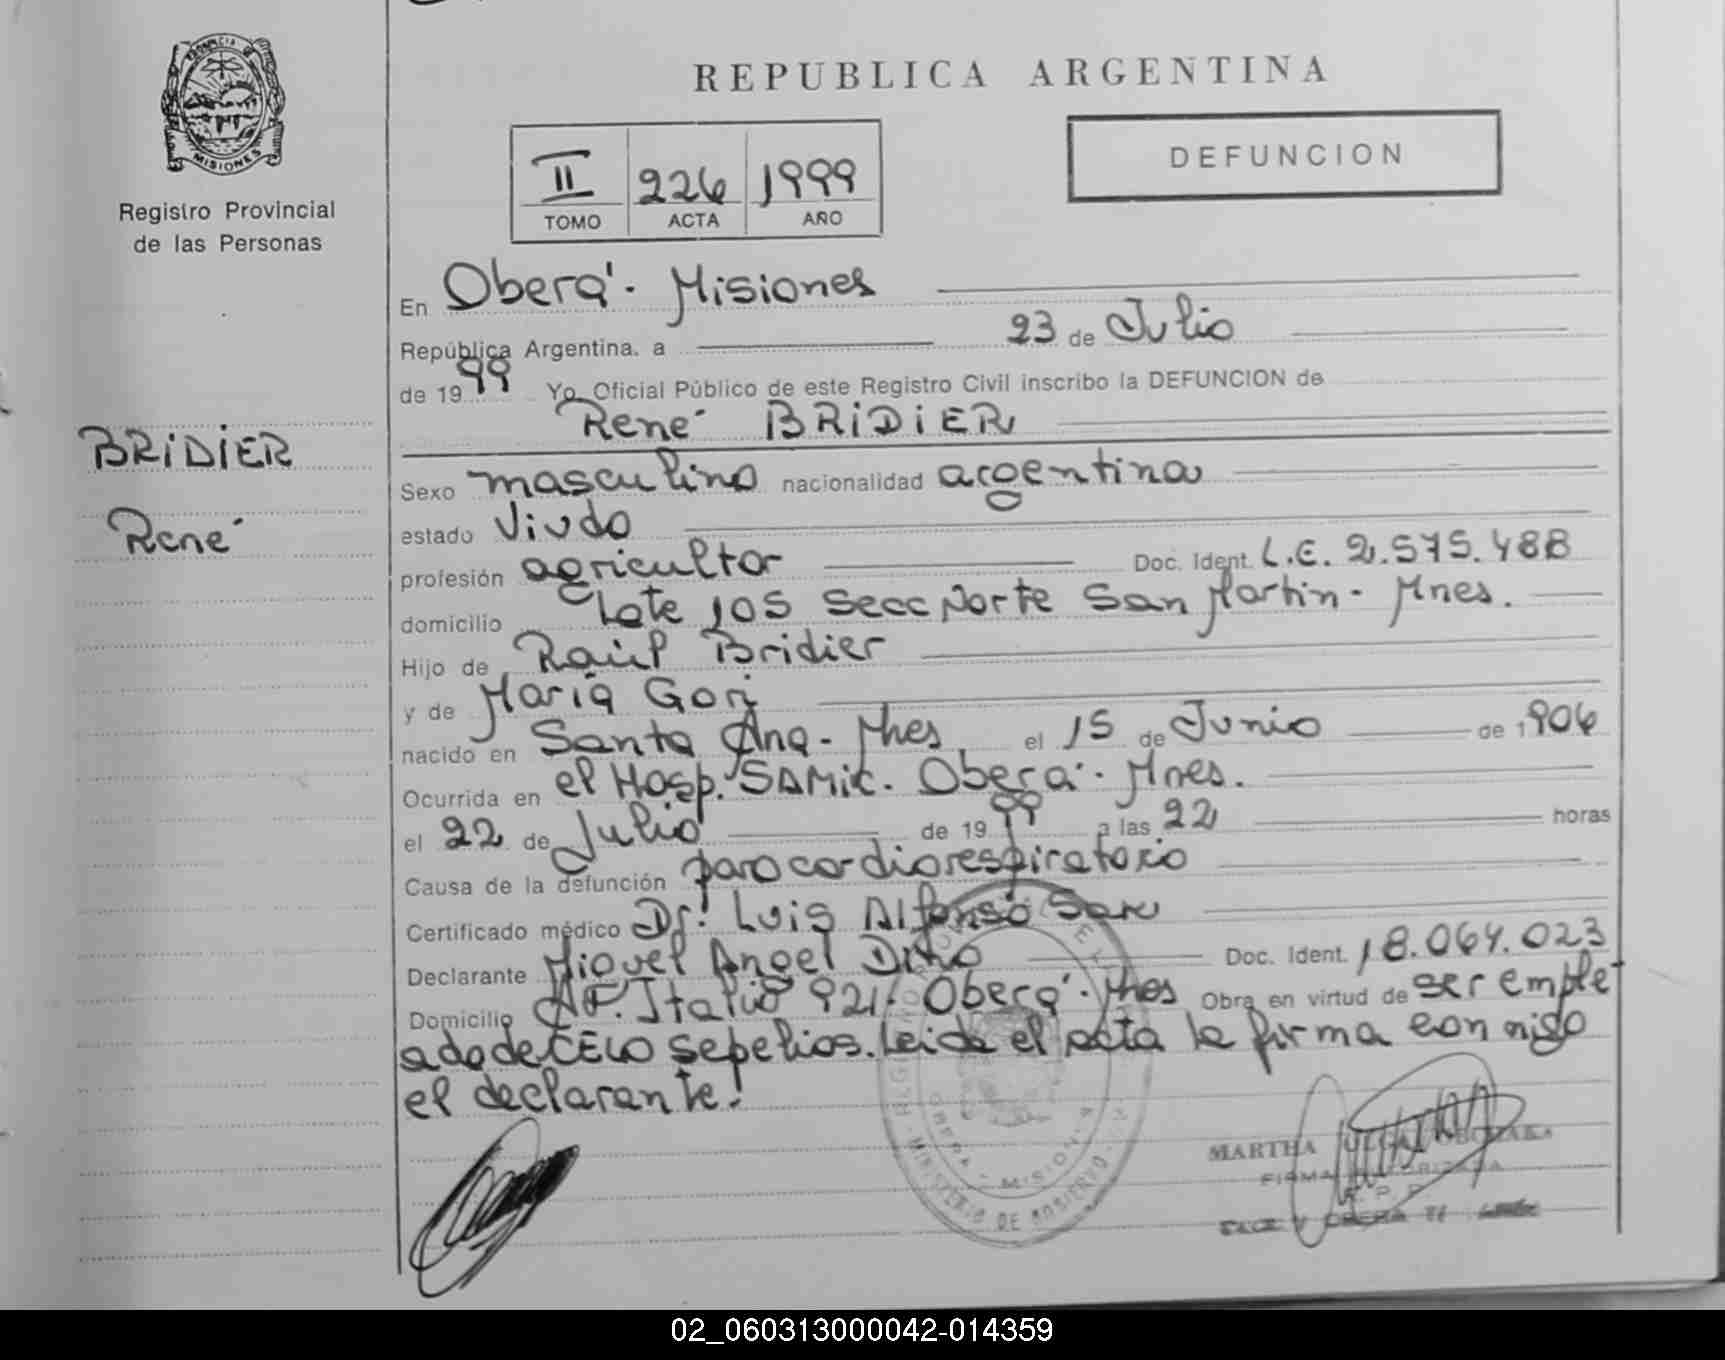 PROVINCIA DE
MISIONES
Registro Provincial
de las Personas
REPUBLICA ARGENTINA
DEFUNCION
II 226 1999
TOMO ACTA AÑO
En Oberá. Misiones
República Argentina. a 23 de Julio
de 1999 Yo, Oficial Público de este Registro Civil inscribo la DEFUNCION de
René BRIDIER
BRIDIER
René
Sexo masculino nacionalidad argentina
estado Viudo
profesión agricultor Doc. Ident. L.E. 2.575.488
domicilio Lote 105 Secc Norte San Martín - Mnes.
Hijo de Raúl Bridier
y de María Gori
nacido en Santa Ana - Mnes el 15 de Junio de 1906
Ocurrida en el Hosp. SAMIC. Oberá. Mnes.
el 22 de Julio de 1999 a las 22 horas
Causa de la defunción paro cardiorespiratorio
Certificado médico Dr. Luis Alfonso
Declarante Miguel Angel Doc. Ident. 18.064.023
Domicilio Av. Italia 921 - Oberá - Mnes Obra en virtud de ser emple
ado de CELO Sepelios. Leida el acta la firma conmigo
el declarante.
OBERA - MISIONES
MINISTERIO DE GOBIERNO
MARTHA OLGA
FIRMA AUTORIZADA
R. P. P.
02_060313000042-014359